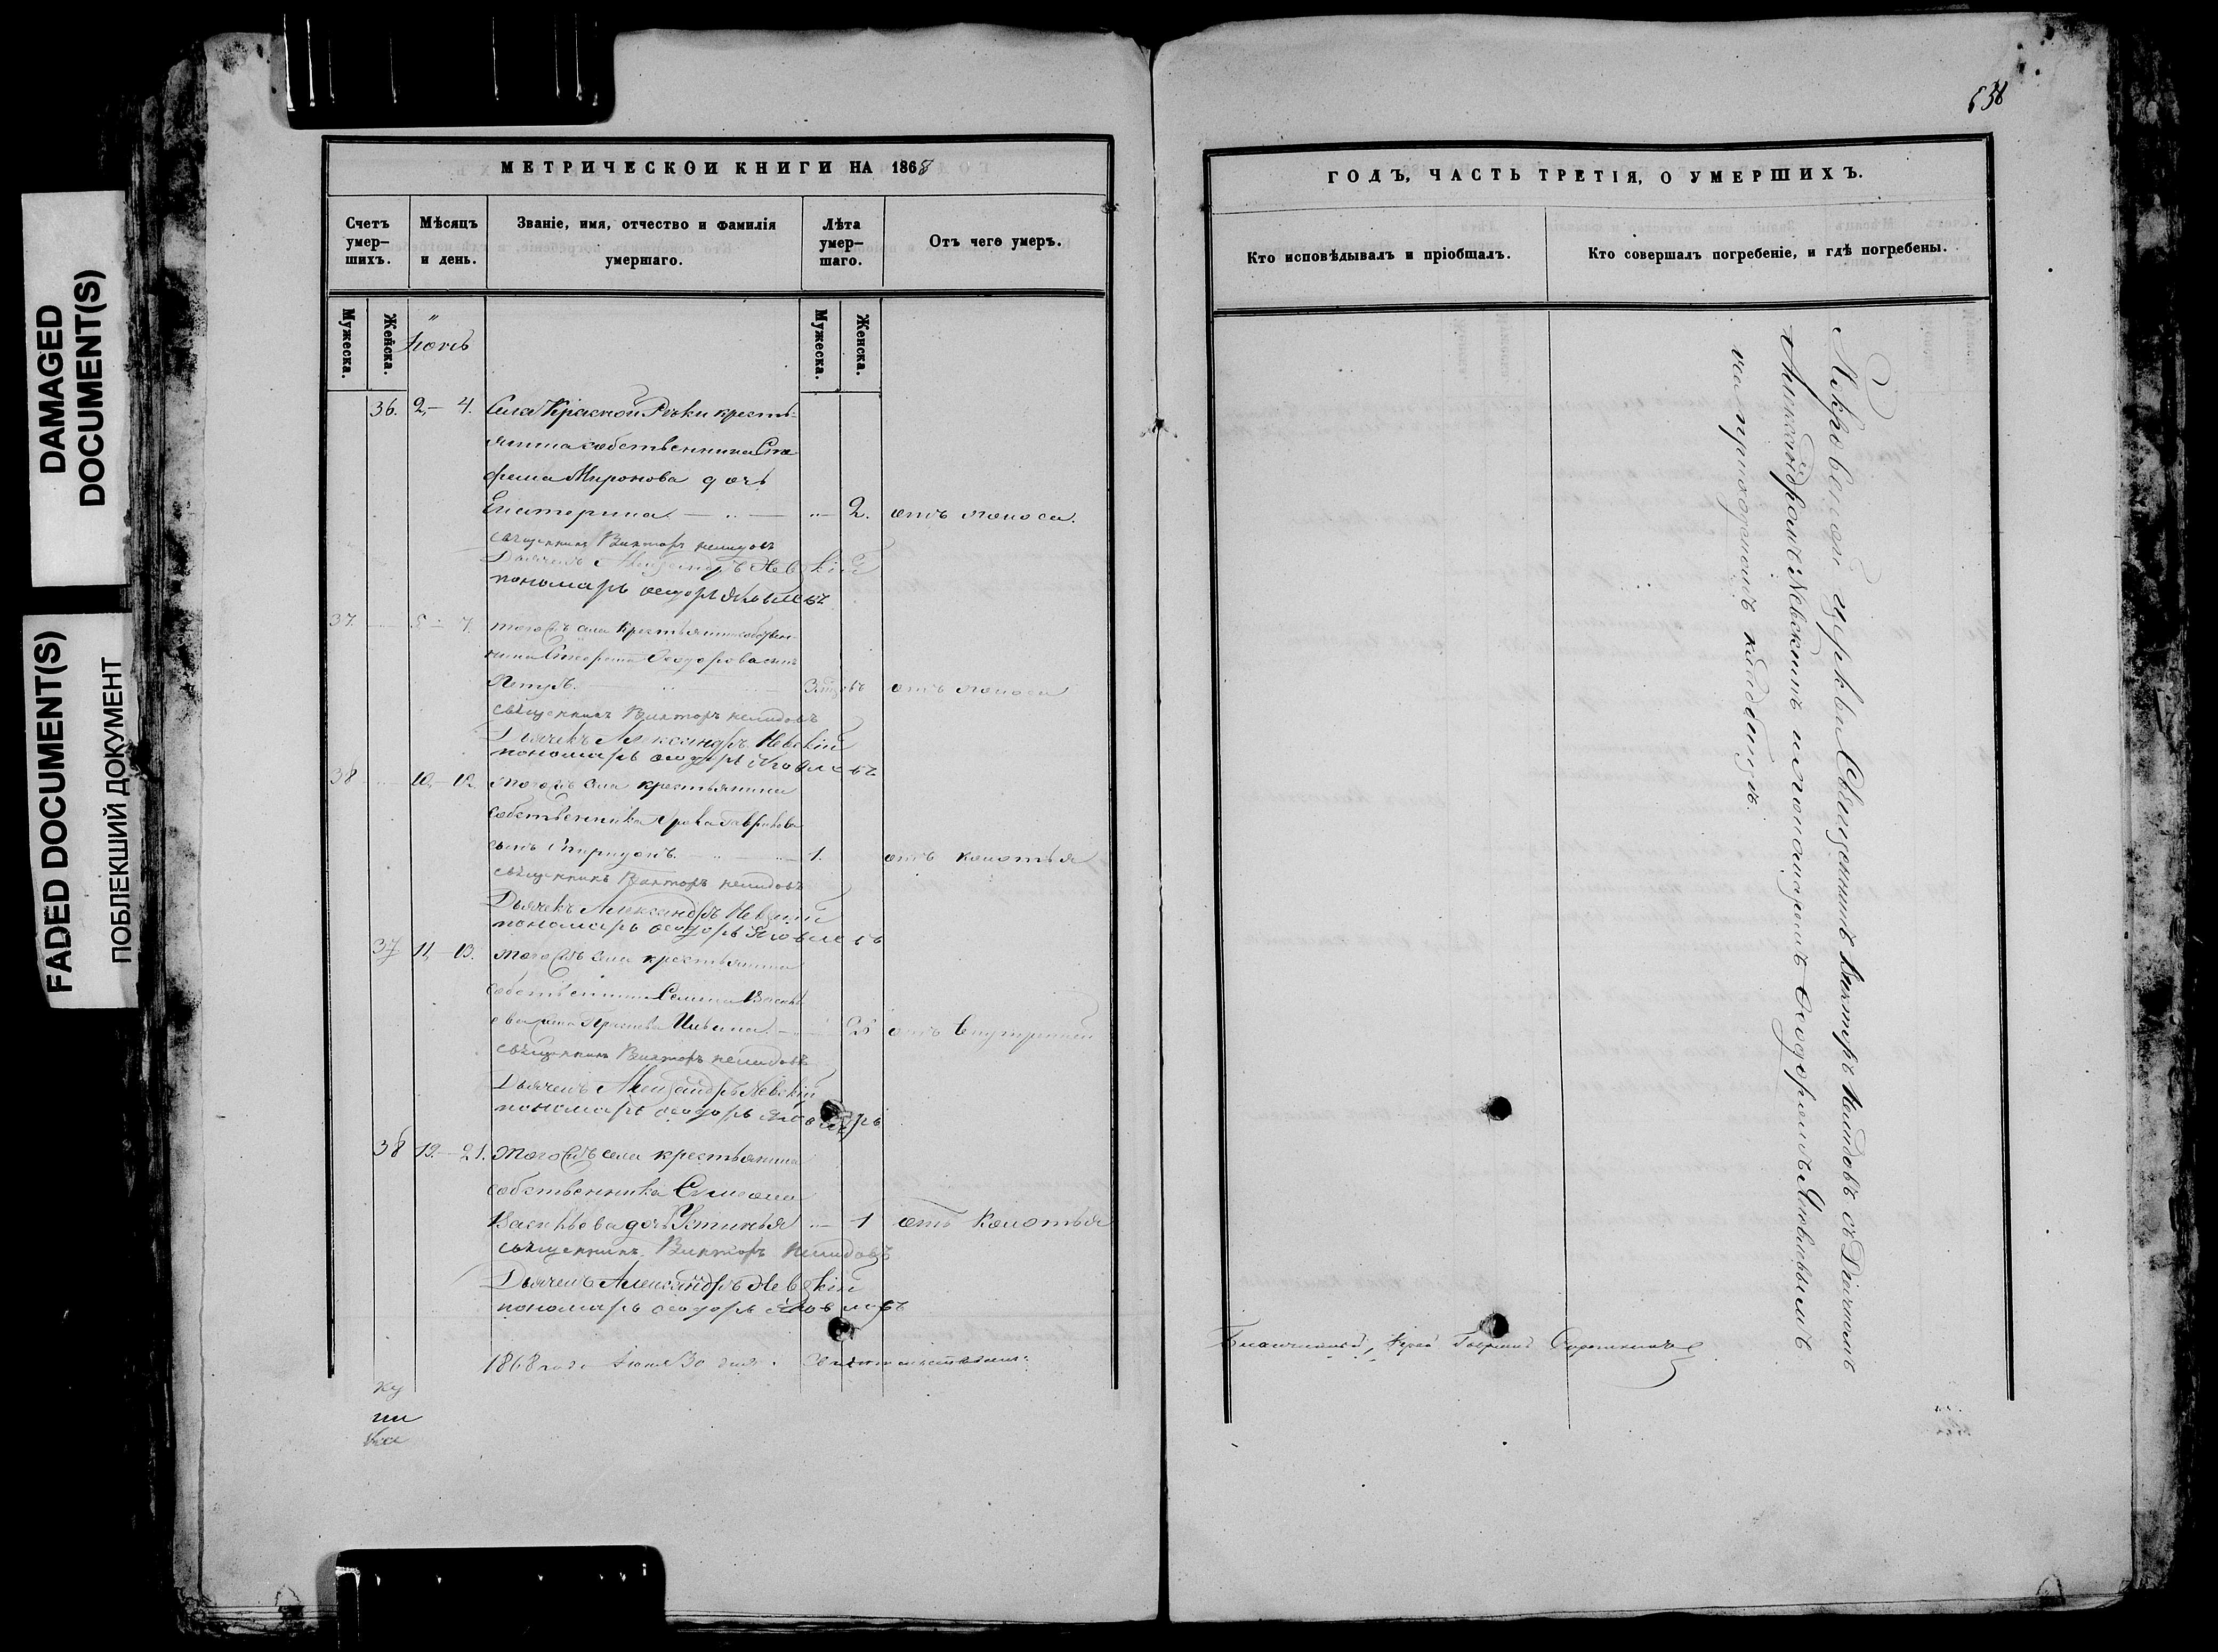 DAMAGED
DOCUMENT(S)
FADED DOCUMENT(S)
ПОБЛЕКШИЙ ДОКУМЕНТ
МЕТРИЧЕСКОИ КНИГИ НА 1868
Счетъ умер-шихъ.
Мѣсяцъ и день.
Званіе, имя, отчество и фамилія умершаго.
Лѣта умер-шаго.
Отъ чего умеръ.
Мужеска.
Женска.
Мужеска.
Женска.
Іюнь
36. 2,– 4. Села Красной Рѣчки кресть-
янина собственника
Миронова дочь
Екатерина – „ – „ – 2. отъ поноса.
священникъ Викторъ Нелидовъ
Дьячекъ Александръ Невскій
пономарь Ѳеодоръ Яковлевъ
37. 5 – 7. того же села крестьянина собствен-
ника Ѳеодорова сынъ
Петръ. отъ поноса
священникъ Викторъ Нелидовъ
Дьячекъ Александръ Невскій
пономарь Ѳеодоръ Яковлевъ
38 10,– 12. того же села крестьянина
собственника
сынъ Спиридонъ. 1. отъ колотья
священникъ Викторъ Нелидовъ
Дьячекъ Александръ Невскій
пономарь Ѳеодоръ Яковлевъ
37 11,– 13. того же села крестьянина
собственника
жена Ильина отъ
священникъ Викторъ Нелидовъ
Дьячекъ Александръ Невскій
пономарь Ѳеодоръ Яковлевъ
38 19.– 21. того же села крестьянина
собственника Симеона
Васильева дочь Устинья „ – 1 отъ колотья
священникъ Викторъ Нелидовъ
Дьячекъ Александръ Невскій
пономарь Ѳеодоръ Яковлевъ
1868 года Іюня 30 дня.
638
ГОДЪ, ЧАСТЬ ТРЕТІЯ, О УМЕРШИХЪ.
Кто исповѣдывалъ и пріобщалъ.
Кто совершалъ погребеніе, и гдѣ погребены.
Покровской церкви Священникъ Викторъ Нелидовъ съ Дьячкомъ
Александромъ Невскимъ и пономаремъ Ѳеодоромъ Яковлевымъ
на приходскомъ кладбищѣ.
Благочинный, Іерей